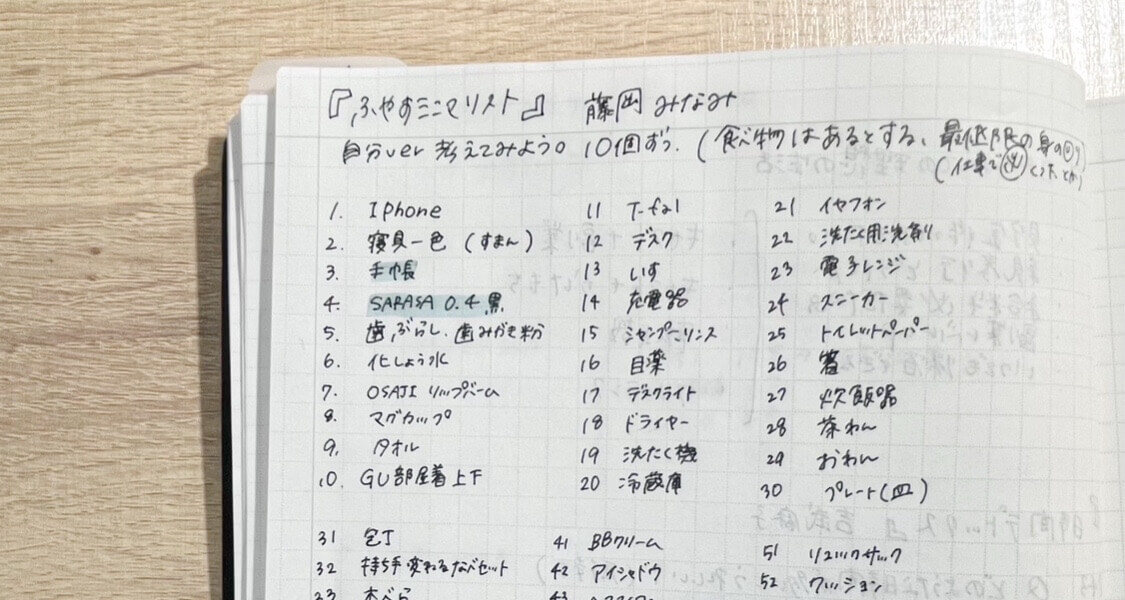 『ふやすミニマリスト』 藤岡みなみ
自分ver 考えてみよう。10個ずつ.(食べ物はあるとする、最低限の身の回り
(仕事で
1. IPhone
2. 寝具一色(すまん)
3. 手帳
4. SARASA 0.4 黒
5. 歯ぶらし、歯みがき粉
6. 化しょう水
7. OSAJI リップバーム
8. マグカップ
9. タオル
10. GU部屋着上下
11 T-fal
12 デスク
13 いす
14 充電器
15 シャンプーリンス
16 目薬
17 デスクライト
18 ドライヤー
19 洗たく機
20 冷蔵庫
21 イヤフォン
22 洗たく用洗剤
23 電子レンジ
24 スニーカー
25 トイレットペーパー
26 箸
27 炊飯器
28 茶わん
29 おわん
30 プレート(皿)
31 包丁
32 持ち手変わるなべセット
33 木べら
41 BBクリーム
42 アイシャドウ
43
51 リュックサック
52 クッション